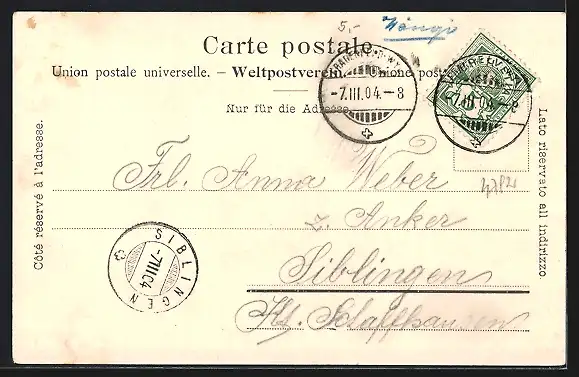 5.-
Wängi
Carte postale.
Union postale universelle. – Weltpostverein. – Unione post
Nur für die Adresse.
-7.III.04.-8
-7.III.04.-8
5
Côté réservé à l'adresse.
Lato riservato all indirizzo.
Frl. Anna Weber
z. Anker
Siblingen
Kt. Schaffhausen
SIBLINGEN
-7.III.04